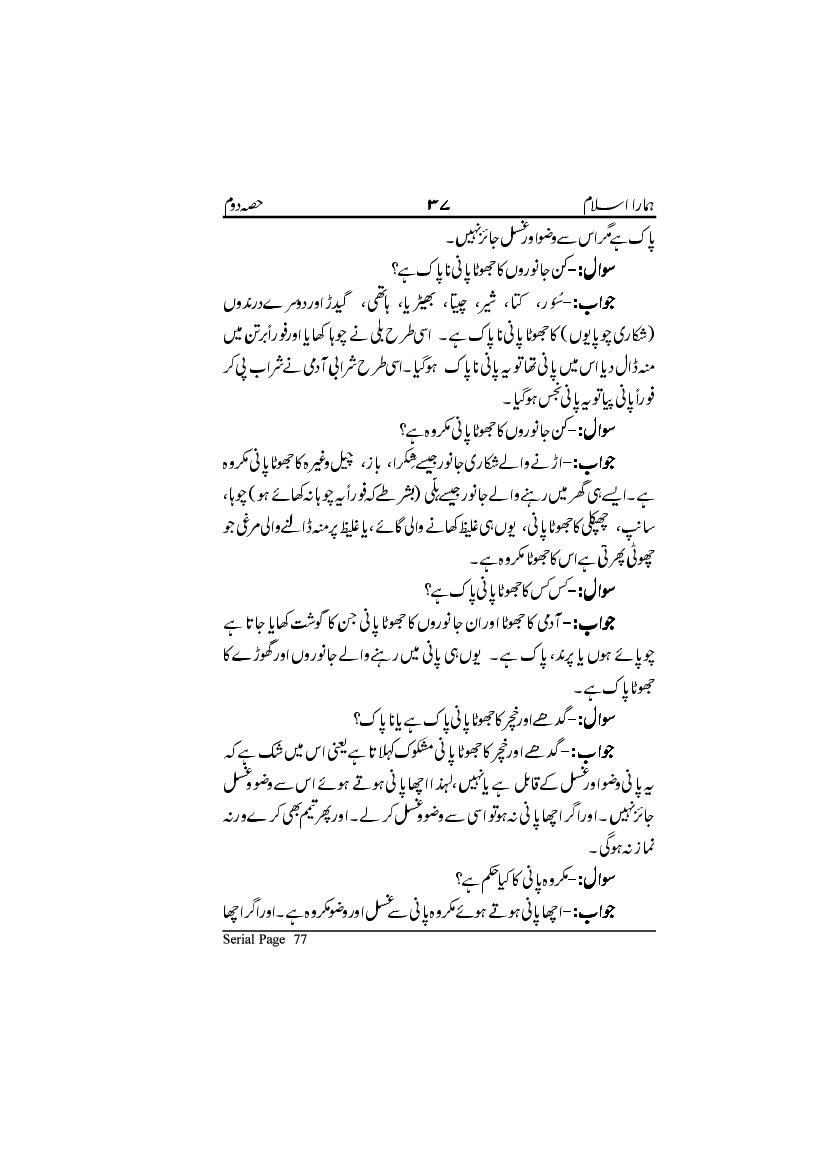 ہمارا اسلام ۳۷ حصہ دوم
پاک ہے مگر اس سے وضو اور غسل جائز نہیں۔
سوال:- کن جانوروں کا جھوٹا پانی ناپاک ہے؟
جواب:- سُوَر، کتا، شیر، چیتا، بھیڑیا، ہاتھی، گیدڑ اور دوسرے درندوں
(شکاری چوپایوں) کا جھوٹا پانی ناپاک ہے۔ اسی طرح بلی نے چوہا کھایا اور فوراً برتن میں
منہ ڈال دیا اس میں پانی تھا تو یہ پانی ناپاک ہوگیا۔ اسی طرح شرابی آدمی نے شراب پی کر
فوراً پانی پیا تو یہ پانی نجس ہوگیا۔
سوال:- کن جانوروں کا جھوٹا پانی مکروہ ہے؟
جواب:- اڑنے والے شکاری جانور جیسے شِکرا، باز، چیل وغیرہ کا جھوٹا پانی مکروہ
ہے۔ ایسے ہی گھر میں رہنے والے جانور جیسے بلّی (بشرطے کہ فوراً یہ چوہا نہ کھائے ہو) چوہا،
سانپ، چھپکلی کا جھوٹا پانی، یوں ہی غلیظ کھانے والی گائے، یا غلیظ پر منہ ڈالنے والی مرغی جو
چھوٹی پھرتی ہے اس کا جھوٹا مکروہ ہے۔
سوال:- کس کس کا جھوٹا پانی پاک ہے؟
جواب:- آدمی کا جھوٹا اور ان جانوروں کا جھوٹا پانی جن کا گوشت کھایا جاتا ہے
چوپائے ہوں یا پرند، پاک ہے۔ یوں ہی پانی میں رہنے والے جانوروں اور گھوڑے کا
جھوٹا پاک ہے۔
سوال:- گدھے اور خچر کا جھوٹا پانی پاک ہے یا ناپاک؟
جواب:- گدھے اور خچر کا جھوٹا پانی مشکوک کہلاتا ہے یعنی اس میں شک ہے کہ
یہ پانی وضو اور غسل کے قابل ہے یا نہیں، لہٰذا اچھا پانی ہوتے ہوئے اس سے وضو و غسل
جائز نہیں۔ اور اگر اچھا پانی نہ ہو تو اسی سے وضو و غسل کر لے۔ اور پھر تیمم بھی کرے ورنہ
نماز نہ ہوگی۔
سوال:- مکروہ پانی کا کیا حکم ہے؟
جواب:- اچھا پانی ہوتے ہوئے مکروہ پانی سے غسل اور وضو مکروہ ہے۔ اور اگر اچھا
Serial Page 77